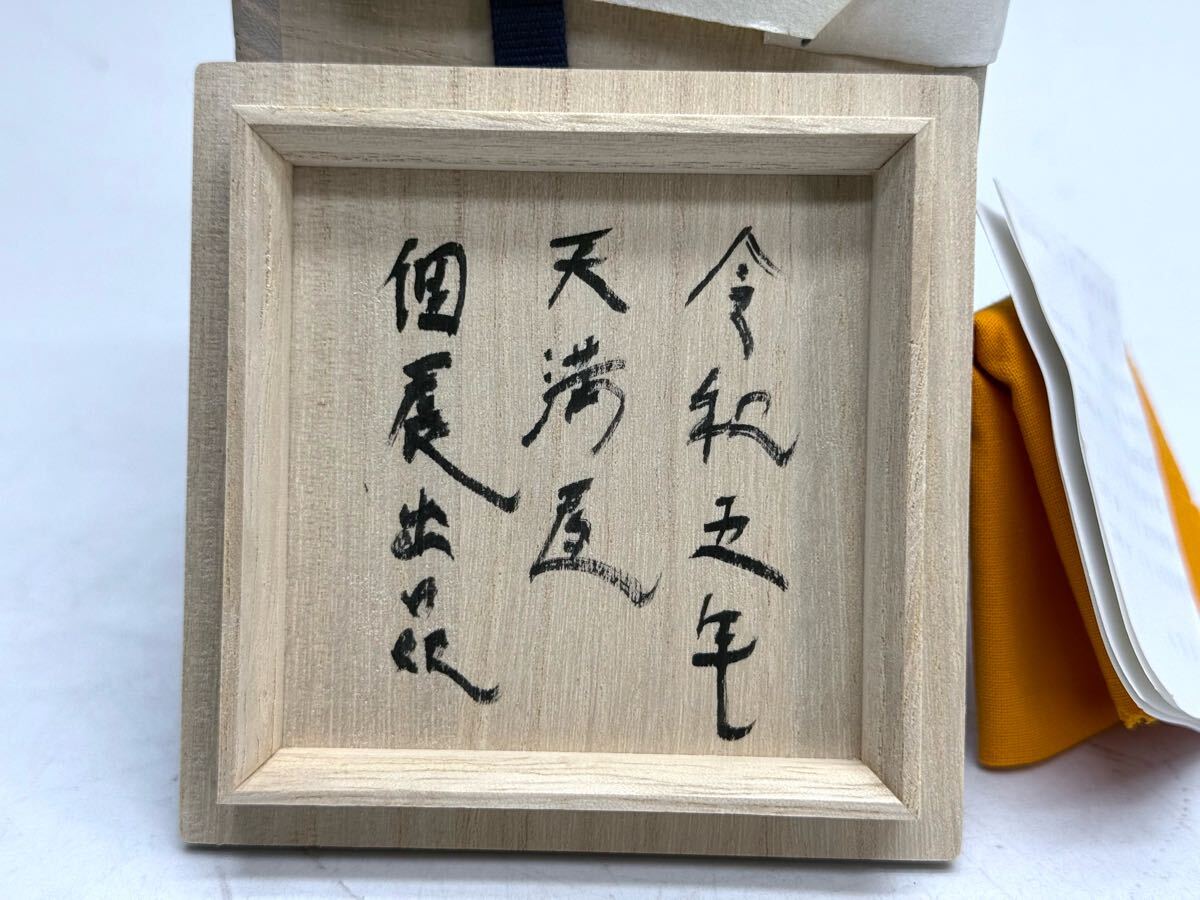 令和五年
天満屋
個展出品